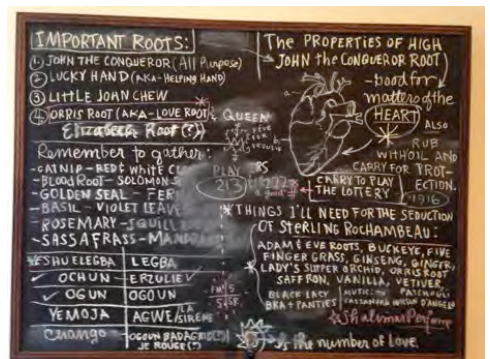 IMPORTANT ROOTS:
① JOHN THE CONQUEROR (All Purpose)
② LUCKY HAND (AKA-HELPING HAND)
③ LITTLE JOHN CHEW
④ ORRIS ROOT (AKA-LOVE ROOT)
QUEEN
Elizabeth Root (?)
Remember to gather:
-CATNIP-RED & WHITE
-BLOOD ROOT-SOLOMON
-GOLDEN SEAL-
-BASIL-VIOLET LEAVE
-ROSEMARY-
-SASSAFRASS-
ESHU ELEGBA LEGBA
OCHUN ERZULIE
OGUN OGOUN
YEMOJA AGWE/LA SIRENE
Chango OGOUN BADAGRI
JE ROUGE (?)
PLAY
213
The PROPERTIES OF HIGH
JOHN the CONQUEROR ROOT
-Good for
matters of the
HEART
ALSO
RUB
WITH OIL AND
CARRY FOR PROT-
ECTION.
CARRY TO PLAY
THE LOTTERY
1916
*THINGS I'LL NEED FOR THE SEDUCTION
OF STERLING ROCHAMBEAU:
ADAM & EVE ROOTS, BUCKEYE, FIVE
FINGER GRASS, GINSENG, GINGER,
LADY'S SLIPPER ORCHID, ORRIS ROOT
SAFFRON, VANILLA, VETIVER,
PATCHOULI
BLACK LACY
BRA + PANTIES
MUSIC:
CASSANDRA WILSON D'ANGELO
*Shalimar Perfume
is the number of Love.